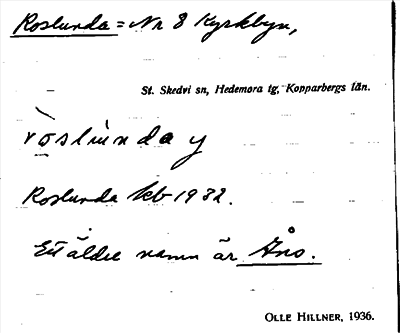 Roslunda = Nr 8 Kyrkbyn,
St. Skedvi sn, Hedemora tg, Kopparbergs län.
ròslùnda y
Roslunda kb 1932.
Ett äldre namn är Åns.
OLLE HILLNER, 1936.